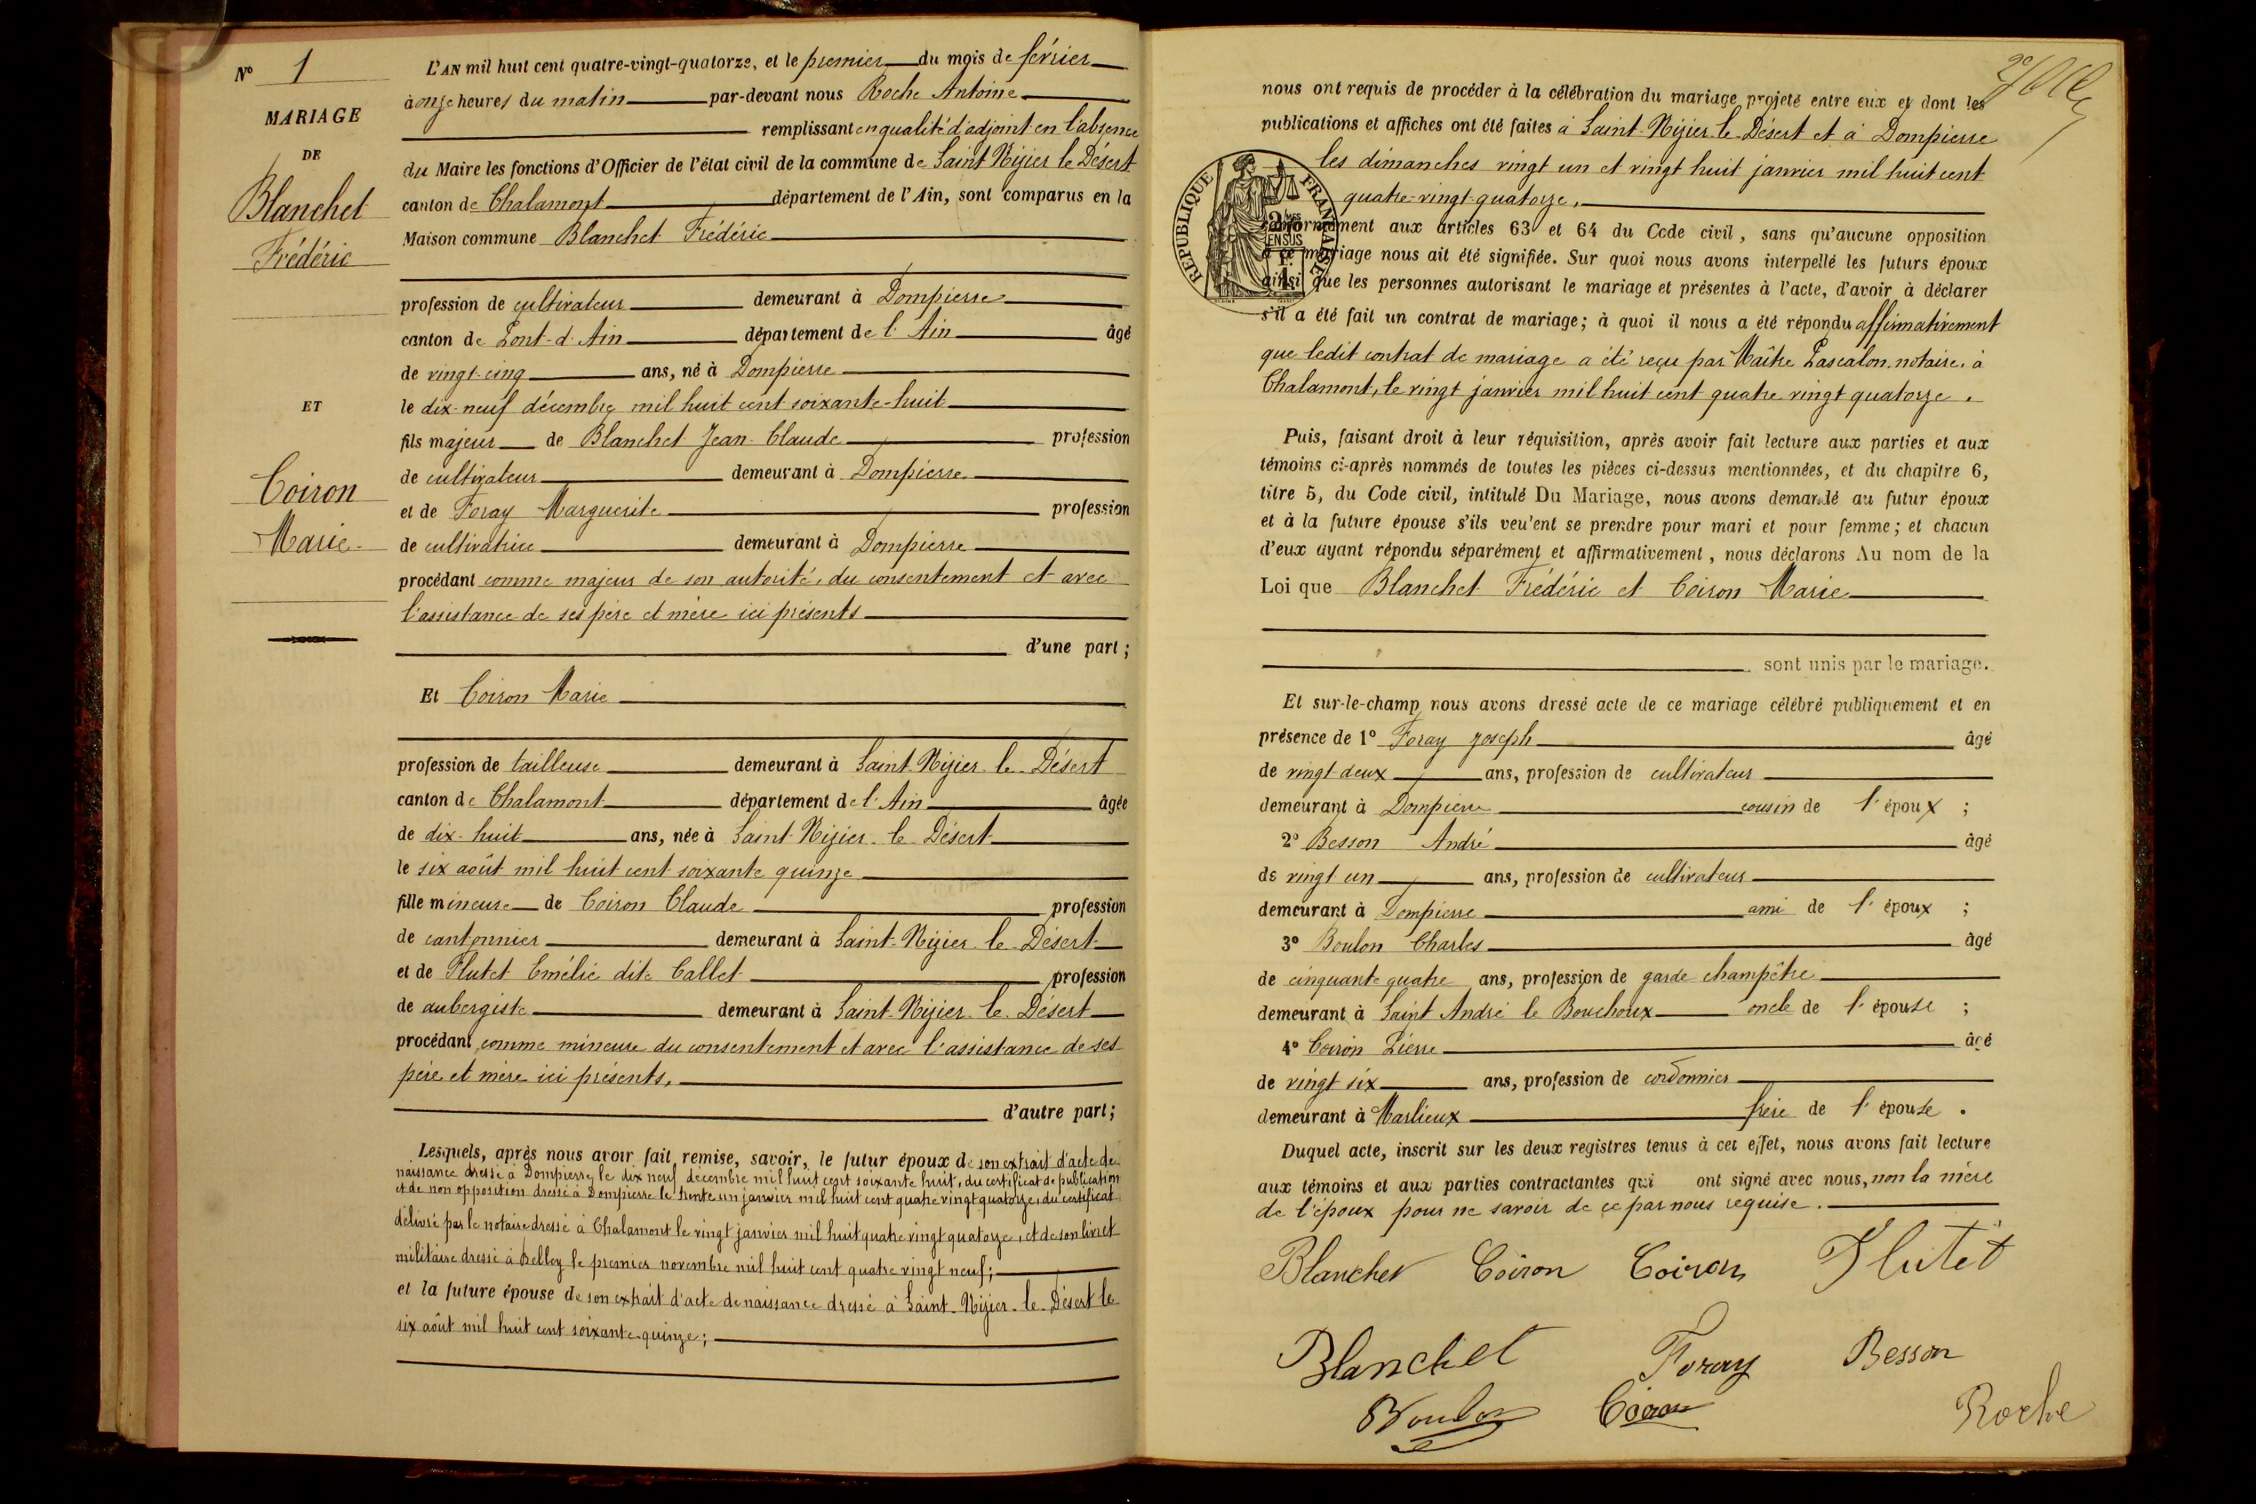 N° 1
MARIAGE
DE
Blanchet
Frédéric
ET
Coiron
Marie
L'AN mil huit cent quatre-vingt-quatorze, et le premier du mois de février
à onze heures du matin par-devant nous Roche Antoine
remplissant en qualité d'adjoint en l'absence
du Maire les fonctions d'Officier de l'état civil de la commune de Saint Nizier le Désert
canton de Chalamont département de l'Ain, sont comparus en la
Maison commune Blanchet Frédéric
profession de cultivateur demeurant à Dompierre
canton de Pont-d'Ain département de l'Ain âgé
de vingt-cinq ans, né à Dompierre
le dix-neuf décembre mil huit cent soixante-huit
fils majeur de Blanchet Jean-Claude profession
de cultivateur demeurant à Dompierre
et de Foray Marguerite profession
de cultivatrice demeurant à Dompierre
procédant comme majeur de son autorité, du consentement et avec
l'assistance de ses père et mère ici présents
d'une part ;
Et Coiron Marie
profession de tailleuse demeurant à Saint-Nizier-le-Désert
canton de Chalamont département de l'Ain âgée
de dix-huit ans, née à Saint-Nizier-le-Désert
le six août mil huit cent soixante quinze
fille mineure de Coiron Claude profession
de cantonnier demeurant à Saint-Nizier-le-Désert
et de Flutet Emélie dite Callet profession
de aubergiste demeurant à Saint-Nizier-le-Désert
procédant comme mineure du consentement et avec l'assistance de ses
père et mère ici présents,
d'autre part ;
Lesquels, après nous avoir fait remise, savoir, le futur époux de son extrait d'acte de
naissance dressé à Dompierre, le dix neuf décembre mil huit cent soixante huit, du certificat de publication
et de non opposition dressé à Dompierre le trente un janvier mil huit cent quatre vingt quatorze, du certificat
délivré par le notaire dressé à Chalamont le vingt janvier mil huit quatre vingt quatorze, et de son livret
militaire dressé à Belley le premier novembre mil huit cent quatre vingt neuf ;
et la future épouse de son extrait d'acte de naissance dressé à Saint-Nizier-le-Désert le
six août mil huit cent soixante-quinze ;
nous ont requis de procéder à la célébration du mariage projeté entre eux et dont les
publications et affiches ont été faites à Saint-Nizier-le-Désert et à Dompierre
les dimanches vingt un et vingt huit janvier mil huit cent
quatre-vingt-quatorze,
REPUBLIQUE FRANÇAISE
conformément aux articles 63 et 64 du Code civil, sans qu'aucune opposition
à ce mariage nous ait été signifiée. Sur quoi nous avons interpellé les futurs époux
ainsi que les personnes autorisant le mariage et présentes à l'acte, d'avoir à déclarer
s'il a été fait un contrat de mariage ; à quoi il nous a été répondu affirmativement
que ledit contrat de mariage a été reçu par Maître Pascalon, notaire, à
Chalamont, le vingt janvier mil huit cent quatre vingt quatorze.
Puis, faisant droit à leur réquisition, après avoir fait lecture aux parties et aux
témoins ci-après nommés de toutes les pièces ci-dessus mentionnées, et du chapitre 6,
titre 5, du Code civil, intitulé Du Mariage, nous avons demandé au futur époux
et à la future épouse s'ils veu'ent se prendre pour mari et pour femme ; et chacun
d'eux ayant répondu séparément et affirmativement, nous déclarons Au nom de la
Loi que Blanchet Frédéric et Coiron Marie
sont unis par le mariage.
Et sur-le-champ nous avons dressé acte de ce mariage célébré publiquement et en
présence de 1° Foray Joseph âgé
de vingt-deux ans, profession de cultivateur
demeurant à Dompierre cousin de l'époux ;
2° Besson André âgé
de vingt un ans, profession de cultivateur
demeurant à Dompierre ami de l'époux ;
3° Boulon Charles âgé
de cinquante quatre ans, profession de garde champêtre
demeurant à Saint André le Bouchoux oncle de l'épouse ;
4° Coiron Pierre âgé
de vingt six ans, profession de cordonnier
demeurant à Marlieux frère de l'épouse.
Duquel acte, inscrit sur les deux registres tenus à cet effet, nous avons fait lecture
aux témoins et aux parties contractantes qui ont signé avec nous, non la mère
de l'époux pour ne savoir de ce par nous requise.
Blanchet Coiron Coiron Flutet
Blanchet Foray Besson
Boulon Coiron Roche